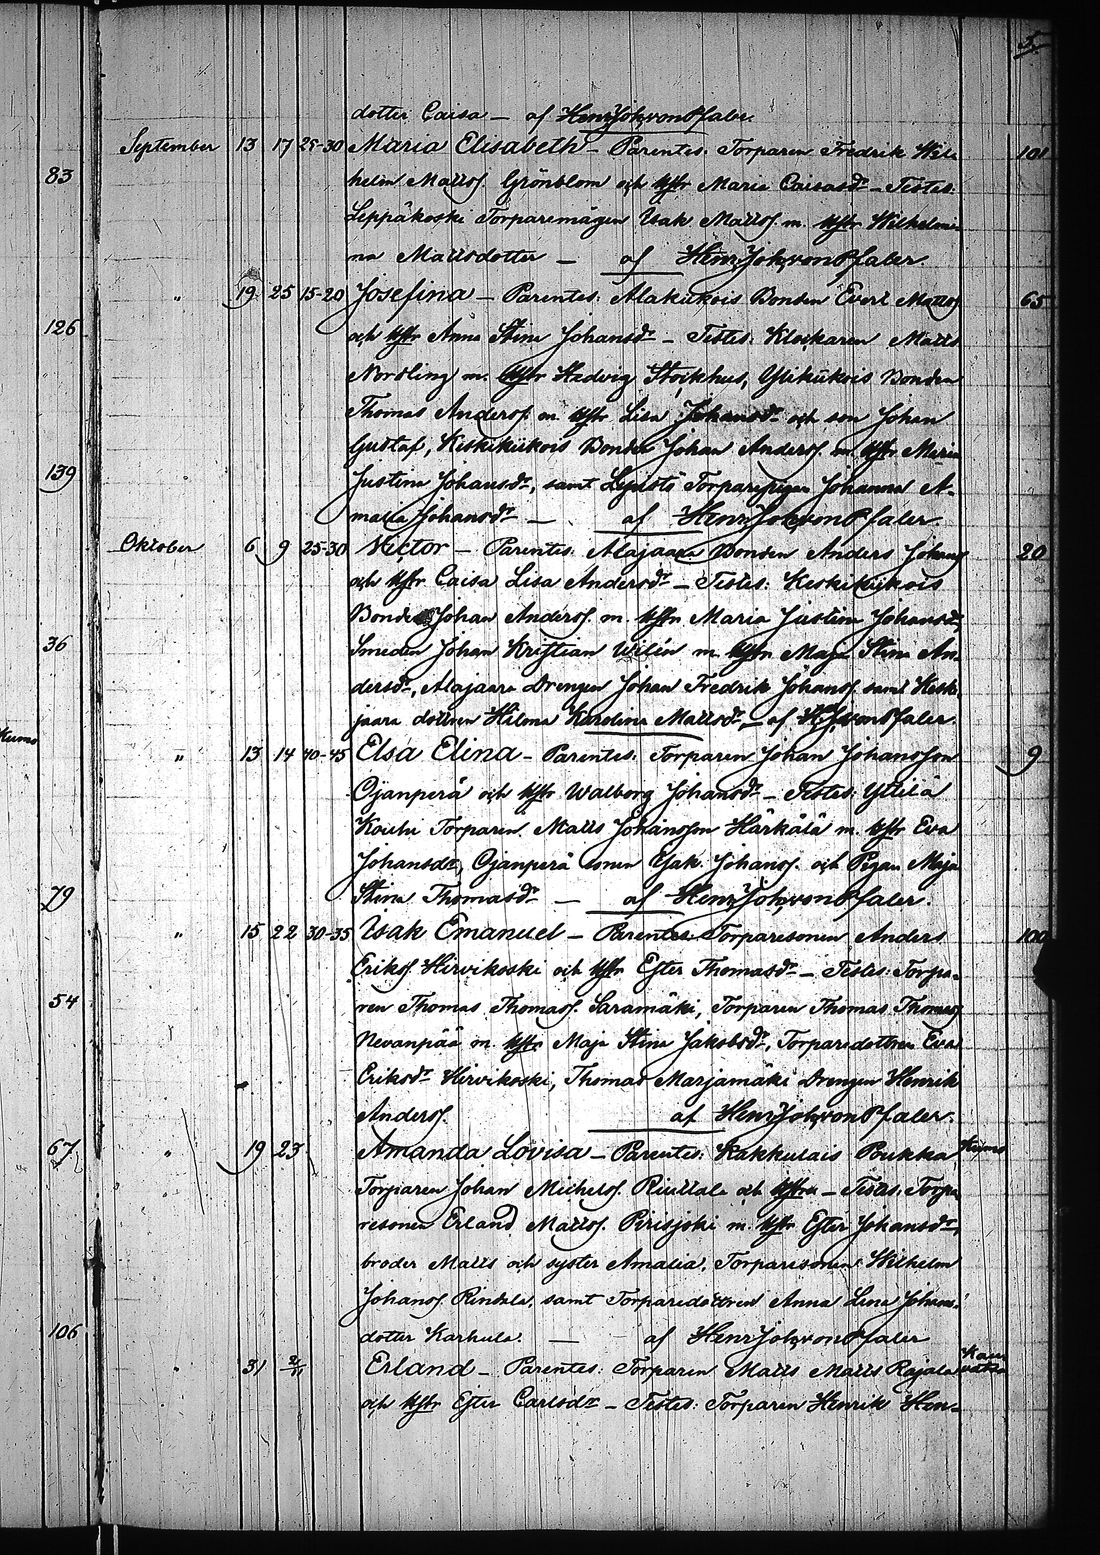 5.
dotter Caisa — af Henr. Joh. von Pfaler.
September 13 17 25-30 Maria Elisabeth — Parentes: Torparen Fredrik Wil- 101
83 helm Mattss. Grönblom och hstr Maria Caisasdr — Testes:
Leppäkoski Torparemågen Isak Mattss. m. hstr Wilhelmi-
na Mattsdotter — af Henr. Joh. von Pfaler.
" 19 25 15-20 Josefina — Parentes: Alakukois Bonden Evert Mattss 65
126 och hstr Anna Stina Johansdr — Testes: Klockaren Matts
Nordling m. hstr Hedvig Stockhus, Ylikukois Bonden
Thomas Anderss. m. hstr Lisa Johansdr och son Johan
Gustaf, Keskikukois Bonden Johan Anderss. m. hstr Maria
139 Justina Johansdr, samt Torparepigan Johanna A-
malia Johansdr — af Henr. Joh. von Pfaler.
Oktober 6 9 25-30 Victor — Parentes: Alajaara Bonden Anders Johanss 20
och hstr Caisa Lisa Andersdr — Testes: Keskikukois
Bonden Johan Anderss. m. hstr Maria Justina Johansdr,
36 Smeden Johan Kristian Wilén m. hstr Maja Stina An-
dersdr, Alajaara Drengen Johan Fredrik Johanss. samt Keski-
jaara dottren Hilma Karolina Mattsdr, — af H. J. von Pfaler.
Kumo
" 13 14 40-45 Elsa Elina — Parentes: Torparen Johan Johansson 9
Ojanperä och hstr Walborg Johansdr — Testes: Yttilä
Torparen Matts Johansson Härkälä m. hstr Eva
Johansdr, Ojanperä sonen Isak Johanss. och Pigan Maja
79 Stina Thomasdr — af Henr. Joh. von Pfaler.
" 15 22 30-35 Isak Emanuel — Parentes: Torparesonen Anders 100
Erikss. Hirvikoski och hstr Ester Thomasdr — Testes: Torpa-
54 ren Thomas Thomass. Saramäki, Torparen Thomas Thomass
Nevanpää m. hstr Maja Stina Jakobsdr, Torparedottren Eva
Eriksdr Hirvikoski, Thomas Marjamäki Drengen Henrik
Anderss. af Henr. Joh. von Pfaler.
67. " 19 23 Amanda Lovisa — Parentes: Kakkulais Poukka Kumo
Torparen Johan Michelss. Riuttala och hstru — Testes: Torpa-
resonen Erland Mattss. Pirisjoki m. hstr Ester Johansdr,
broder Matts och syster Amalia, Torparesonen Wilhelm
Johanss. Rintala, samt Torparedottren Anna Lena Johans-
106 dotter Karhula. — af Henr. Joh. von Pfaler
" 31 2/11 Erland — Parentes: Torparen Matts Matts Rajala Kauvatsa
och hstr Ester Carlsdr — Testes: Torparen Henrik Hen-